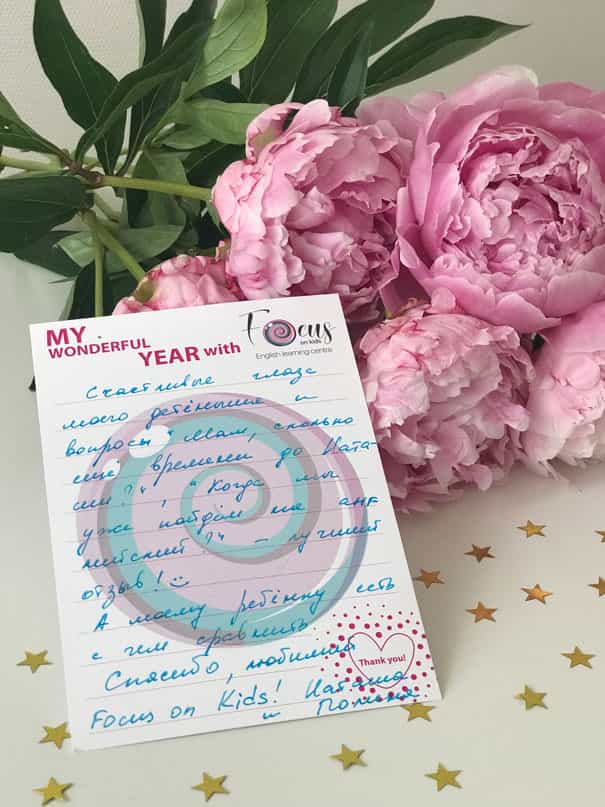 MY
WONDERFUL
YEAR with
Focus
on kids
English learning centre
Счастливые глаза
моего детёныша и
вопросы "Мам, сколько
ещё времени до Ната-
ши?", "Когда мы
уже пойдём на анг
лийский?" – лучший
отзыв! :)
А моему ребёнку есть
с чем сравнить
Спасибо, любимый
Focus on Kids! Наташа
и Полина
Thank you!